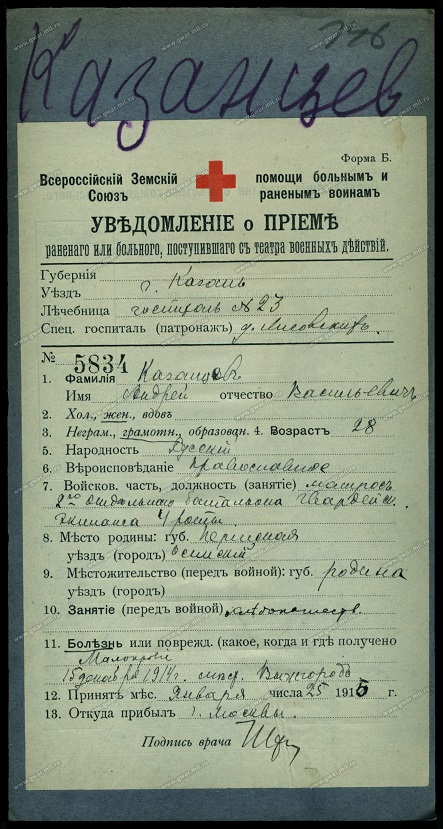 776
Казанцев
Форма Б.
Всероссійскій Земскій помощи больнымъ и
Союзъ раненымъ воинамъ
УВѢДОМЛЕНІЕ о ПРІЕМѢ
раненаго или больного, поступившаго съ театра военныхъ дѣйствій.
Губернія
Уѣздъ г. Казань
Лѣчебница госпиталь №23
Спец. госпиталь (патронажъ)
№ 5834
1. Фамилія Казанцевъ
Имя Андрей отчество Васильевичъ
2. Хол., жен., вдовъ
3. Неграм., грамотн., образован. 4. Возрастъ 28
5. Народность Русскій
6. Вѣроисповѣданіе Православное
7. Войсков. часть, должность (занятіе) матросъ
2го отдѣльнаго баталіона Гвардейск.
экипажа 4 роты.
8. Мѣсто родины: губ. Пермская
уѣздъ (городъ) Осинскій
9. Мѣстожительство (передъ войной): губ. родина
уѣздъ (городъ)
10. Занятіе (передъ войной) хлѣбопашеств.
11. Болѣзнь или поврежд. (какое, когда и гдѣ получено
Малокровіе
15 декабря 1914 г. Вышгородъ
12. Принятъ мѣс. Января числа 25 1915 г.
13. Откуда прибылъ г. Москвы.
Подпись врача
www.gwar.mil.ru